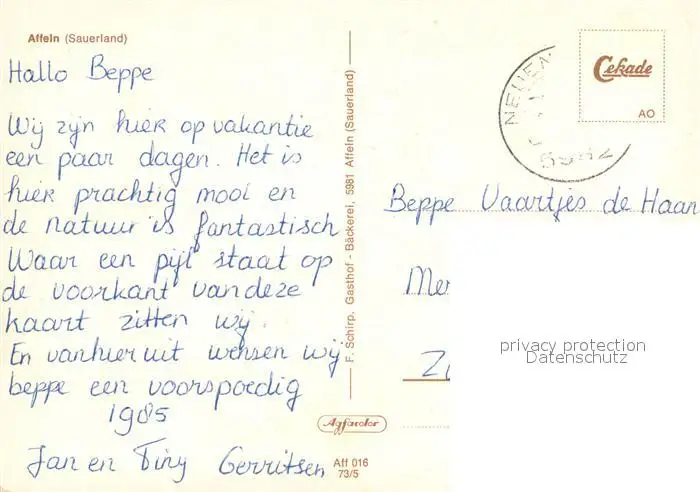 Affeln (Sauerland)
Hallo Beppe
Wij zijn hier op vakantie
een paar dagen. Het is
hier prachtig mooi en
de natuur is fantastisch
Waar een pijl staat op
de voorkant van deze
kaart zitten wij.
En vanhieruit wensen wij
beppe een voorspoedig
1985
Jan en Tiny Gerritsen
F. Schirp, Gasthof - Bäckerei, 5981 Affeln (Sauerland)
Agfacolor
Aff 016
73/5
Cekade
AO
Beppe Vaartjes de Haan
privacy protection
Datenschutz